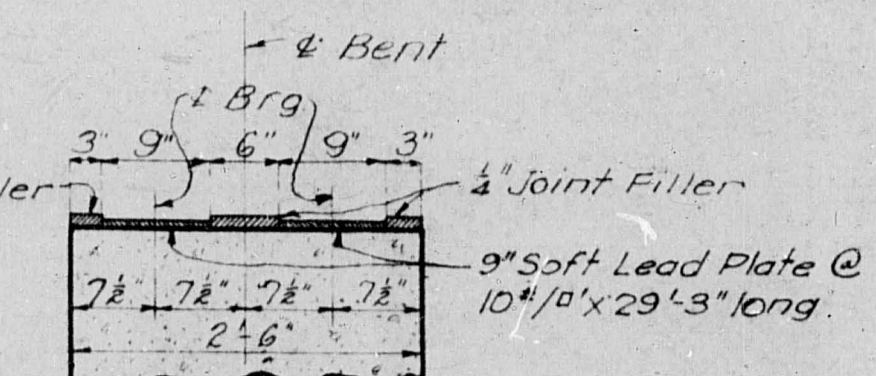 ℄ Bent
℄ Brg
3" 9" 6" 9" 3"
ler
1/4" Joint Filler
9" Soft Lead Plate @
10#/□' x 29'-3" long.
7 1/2" 7 1/2" 7 1/2" 7 1/2"
2'-6"